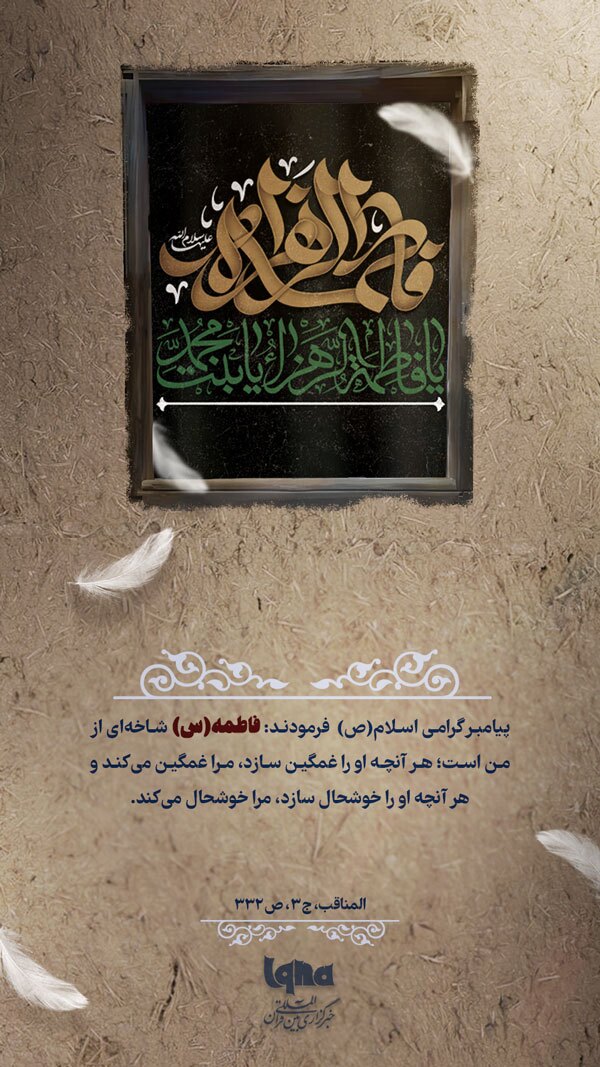 فاطمة الزهرا
علیها سلام الله
یا فاطمة الزهراء یا بنت محمد
پیامبر گرامی اسلام(ص) فرمودند: فاطمه(س) شاخه‌ای از
من است؛ هر آنچه او را غمگین سازد، مرا غمگین می‌کند و
هر آنچه او را خوشحال سازد، مرا خوشحال می‌کند.
المناقب، ج۳، ص۳۳۲
iqna
خبرگزاری بین المللی قرآن